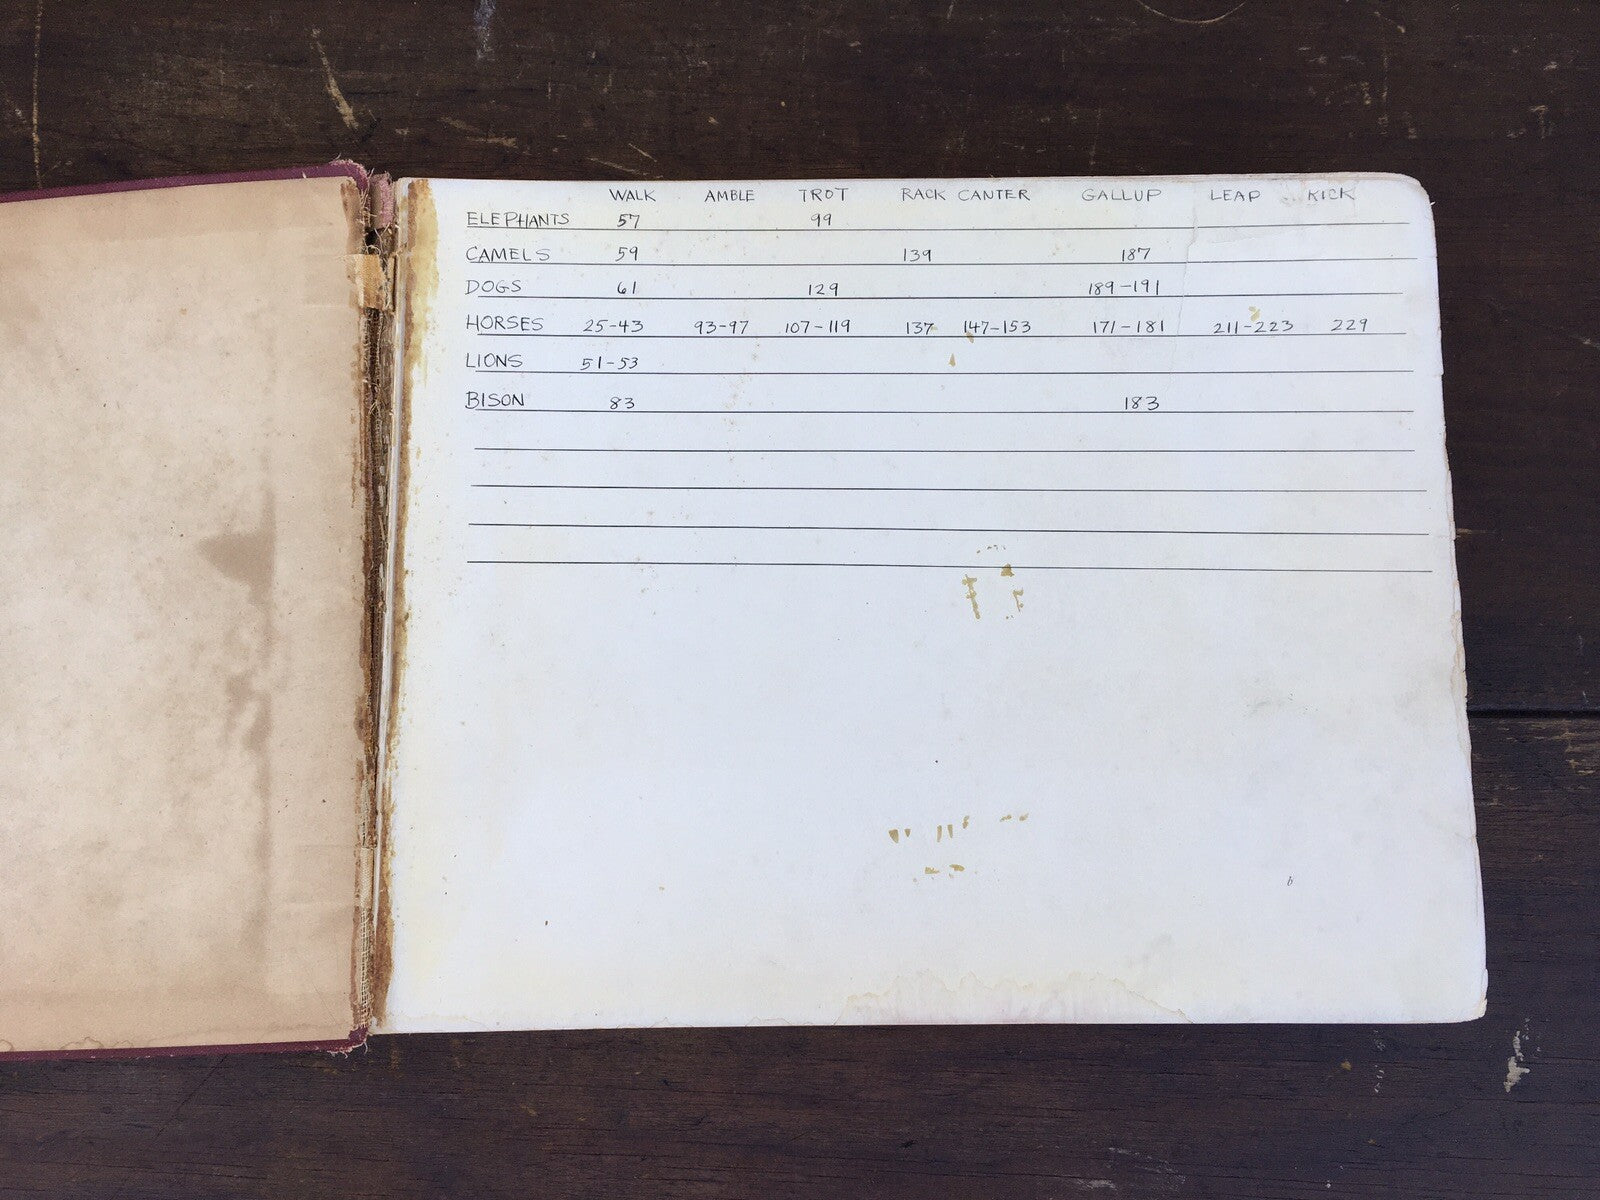 WALK AMBLE TROT RACK CANTER GALLUP LEAP KICK
ELEPHANTS 57 99
CAMELS 59 139 187
DOGS 61 129 189-191
HORSES 25-43 93-97 107-119 137 147-153 171-181 211-223 229
LIONS 51-53
BISON 83 183
b